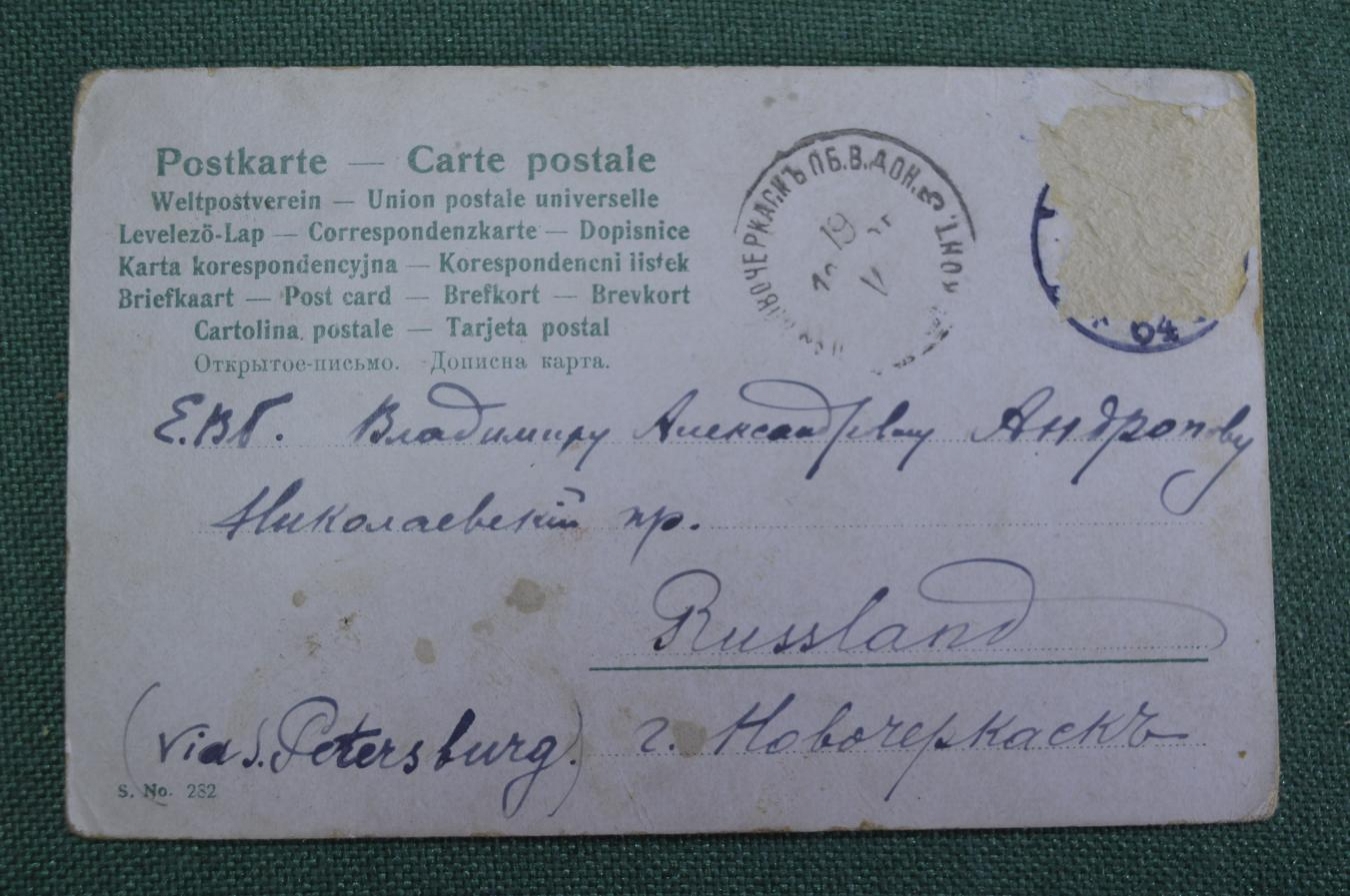 Postkarte — Carte postale
Weltpostverein — Union postale universelle
Levelező-Lap — Correspondenzkarte — Dopisnice
Karta korespondencyjna — Korespondencni listek
Briefkaart — Post card — Brefkort — Brevkort
Cartolina postale — Tarjeta postal
Открытое-письмо. Дописна карта.
ОЧЕРКАСКЪ ОБ.В.ДОН. ПОЧТ.
19
04
Е.ВБ. Владимиру Александровичу Андропову
Николаевский пр.
Russland
(via S. Petersburg)
г. Новочеркаскъ
S. No. 282